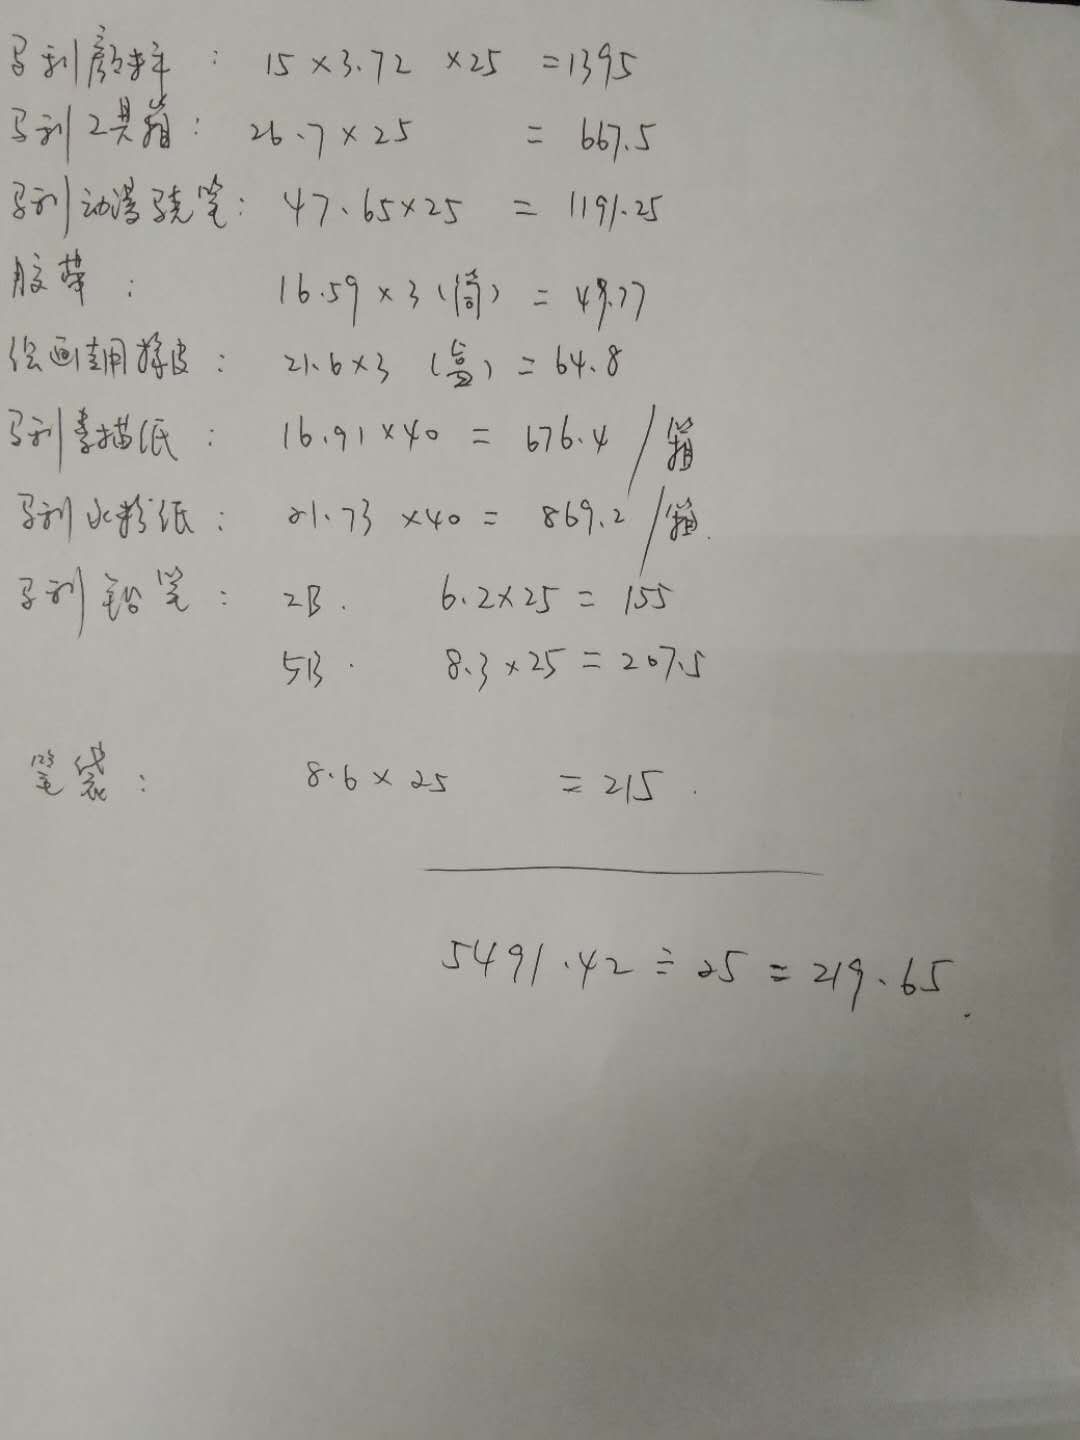 马利颜料： 15×3.72 ×25 =1395
马利工具箱： 26.7×25 = 667.5
马利动漫马克笔： 47.65×25 = 1191.25
胶带： 16.59×3（筒）= 49.77
绘画专用橡皮： 21.6×3（盒）=64.8
马利素描纸： 16.91×40 = 676.4/箱
马利水粉纸： 21.73×40= 869.2/箱.
马利铅笔： 2B. 6.2×25=155
5B. 8.3×25=207.5
笔袋： 8.6×25 =215.
5491.42÷25=219.65.